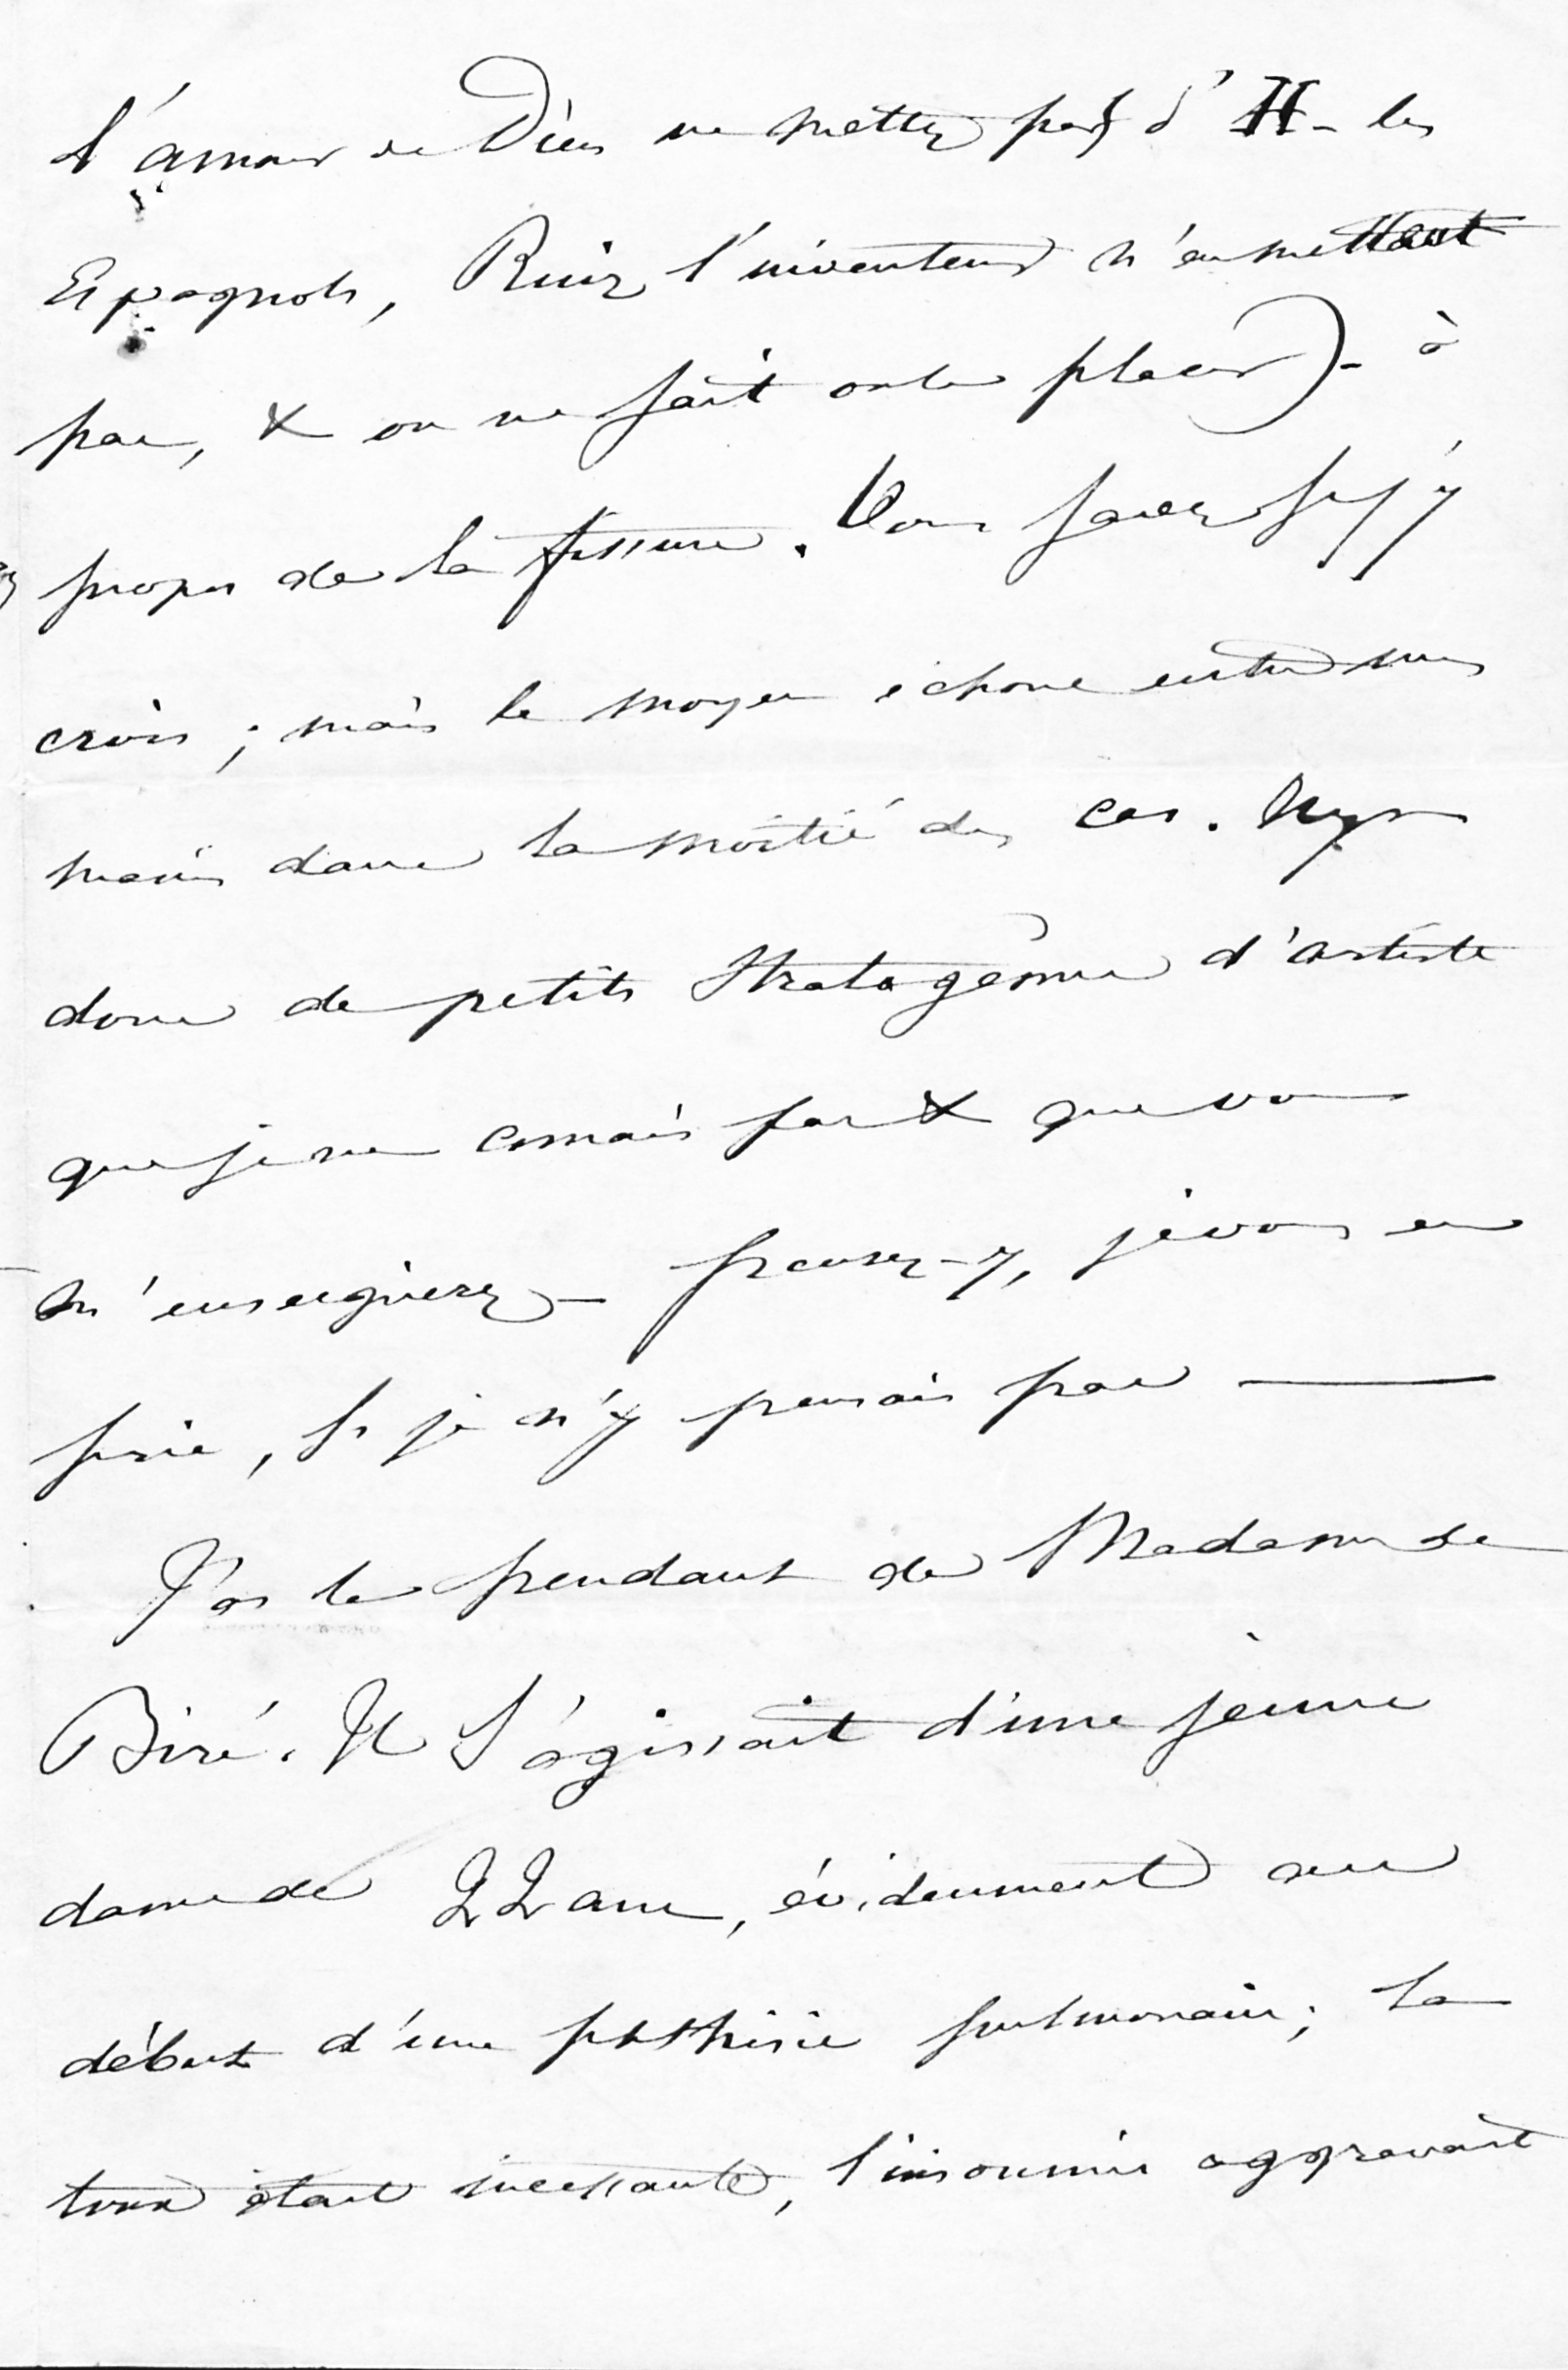 l'amour de Dieu ne mettez pas d'H - les
Espagnols, Ruiz l'inventeur n'en mettant
pas, & on ne sait où le placer) - à
propos de la fissure. Vous savez si j'y
crois ; mais le moyen échoue entre mes
mains dans la moitié des cas. Il y a
donc de petits stratagèmes d'artiste
que je ne connais pas & que vous
m'enseignerez - pensez-y, je vous en
prie, si je n'y pensais pas —
J'ai le pendant de Madame de
Biré. Il s'agissait d'une jeune
dame de 22 ans, évidemment au
début d'une phthisie pulmonaire ; la
toux était incessante, l'insomnie aggravait